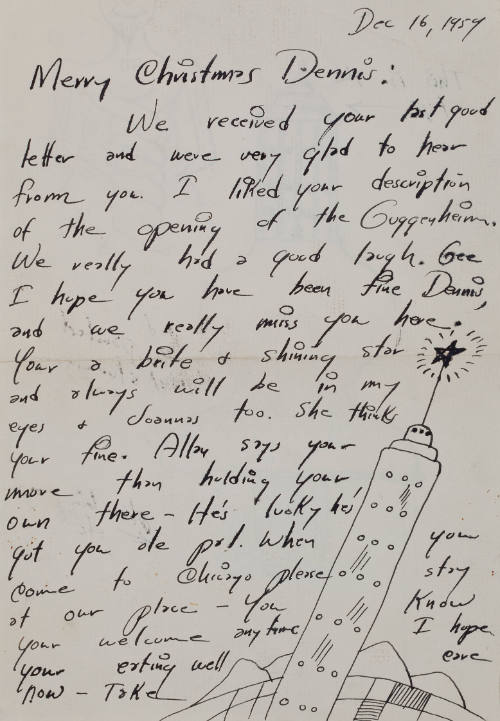 Dec 16, 1959
Merry Christmas Dennis:
We received your last good
letter and were very glad to hear
from you. I liked your description
of the opening of the Guggenheim.
We really had a good laugh. Gee
I hope you have been fine Dennis,
and we really miss you here.
Your a brite & shining star
and always will be in my
eyes & Joannas too. She thinks
your fine. Allan says your
more than holding your
own there – He's lucky he's
got you ole pal. When you
come to Chicago please stay
at our place – You Know
your welcome anytime I hope
your eating well
now – Take care